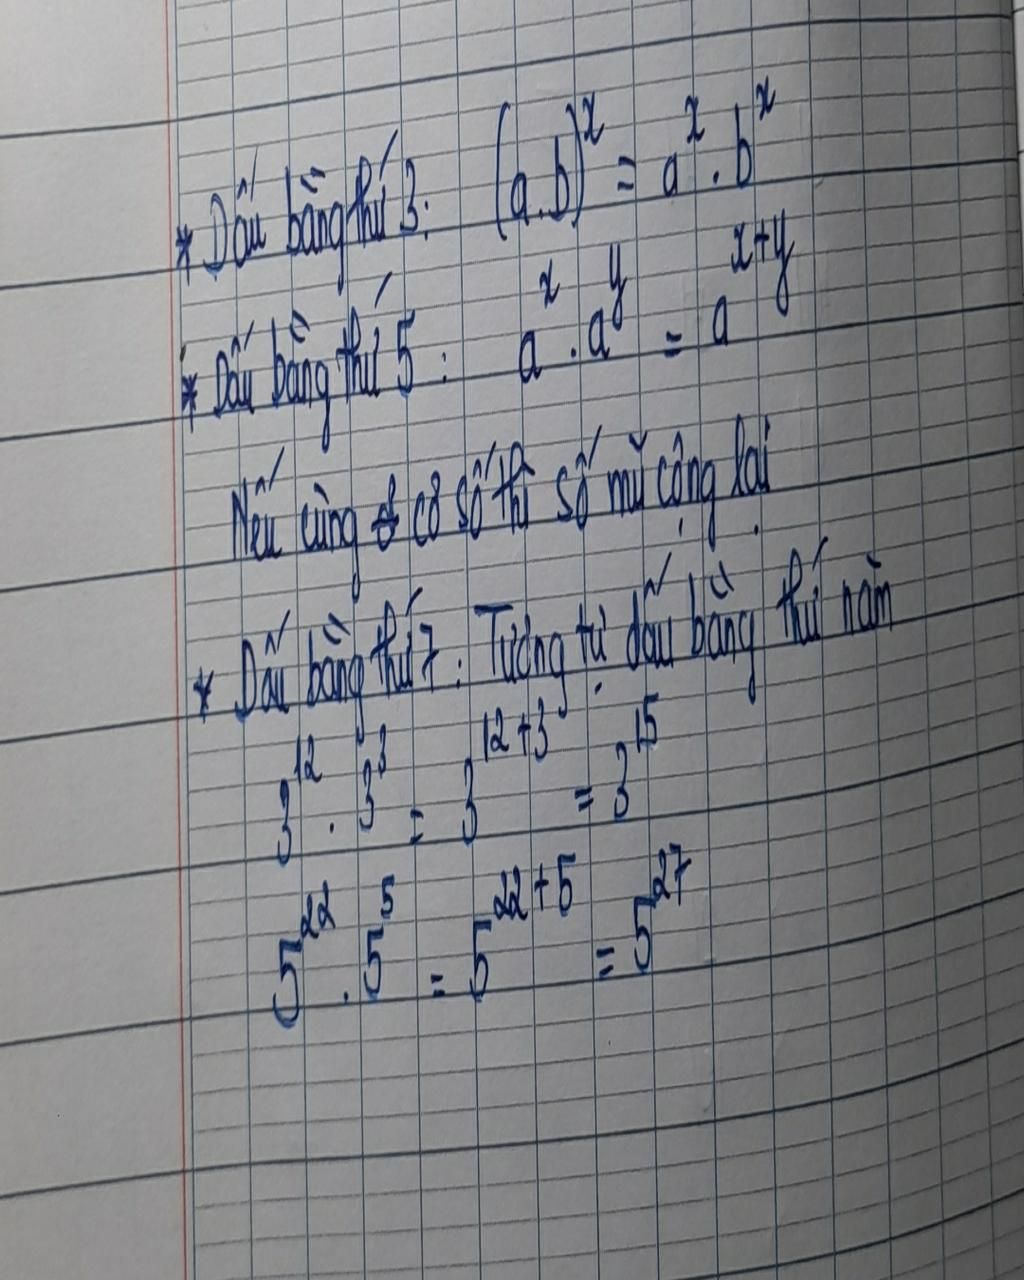 * Dấu bằng thứ 3: (a.b)^x = a^x . b^x
* Dấu bằng thứ 5 : a^x . a^y = a^{x+y}
Nếu cùng cơ số thì số mũ cộng lại
* Dấu bằng thứ 7 : Tương tự dấu bằng thứ năm
3^{12} . 3^3 = 3^{12+3} = 3^{15}
5^{22} . 5^5 = 5^{22+5} = 5^{27}